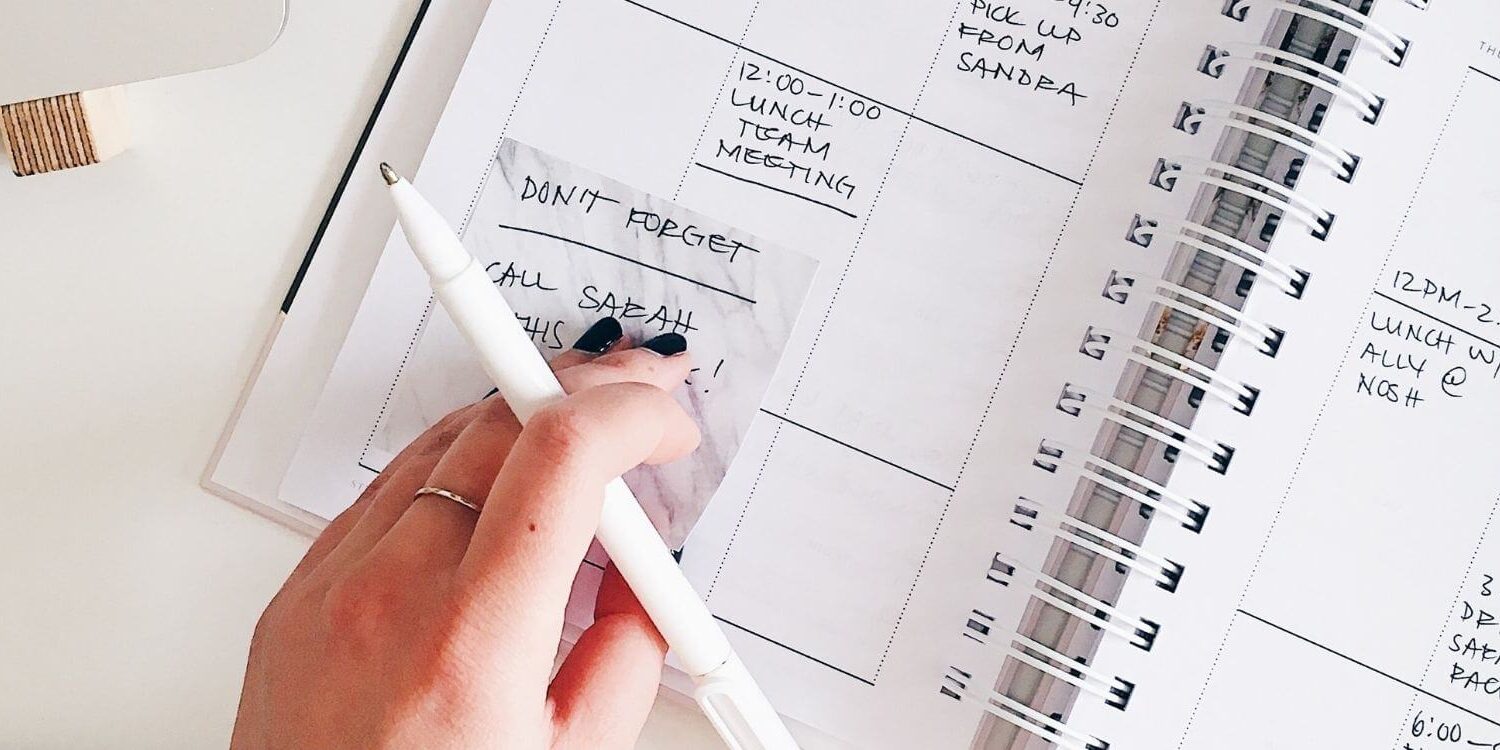 4:30
PICK UP
FROM
SANDRA
12:00-1:00
LUNCH
TEAM
MEETING
DON'T FORGET
CALL SARAH
THIS
!
12PM-2
LUNCH W/
ALLY @
NOSH
3
6:00-